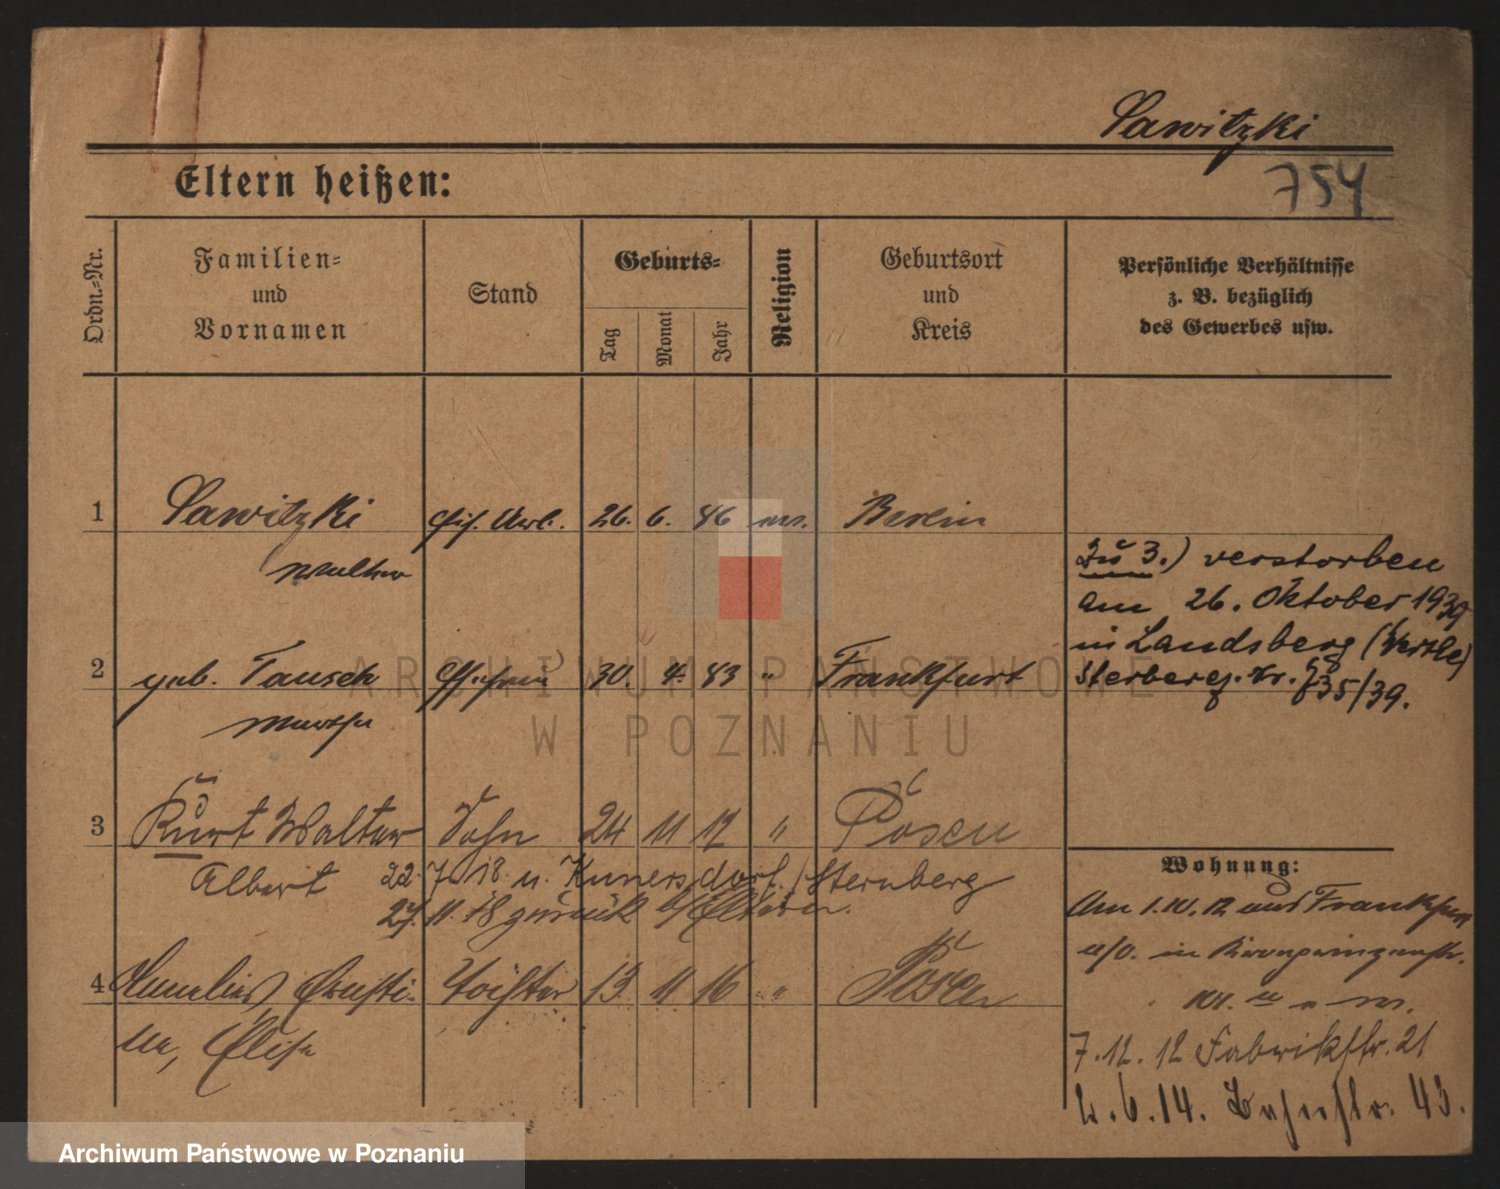 Sawitzki
754
Eltern heißen:
Ordn.-Nr.
Familien-
und
Vornamen
Stand
Geburts-
Tag
Monat
Jahr
Religion
Geburtsort
und
Kreis
Persönliche Verhältnisse
z. B. bezüglich
des Gewerbes usw.
1 Sawitzki 26. 6. Berlin
Walther
2 geb. Tausch Ehefrau 30. 4. 83 " Frankfurt
Martha
3 Kurt Walter Sohn 24 11 12 " Posen
Albert 22. 7. 18. n. Kunersdorf / Sternberg
27. 11. 18 zurück b/Eltern.
4 Tochter 13 11 16 " Posen
ne, Elise
Zu 3.) verstorben
am 26. Oktober 1939
in Landsberg (Warthe)
Sterbereg. Nr.
Wohnung:
Am 1.10.12 aus Frankfurt
a/O. in
7.12.12 Fabrikstr. 21
2.6.14. 43.
ARCHIWUM PAŃSTWOWE
W POZNANIU
Archiwum Państwowe w Poznaniu